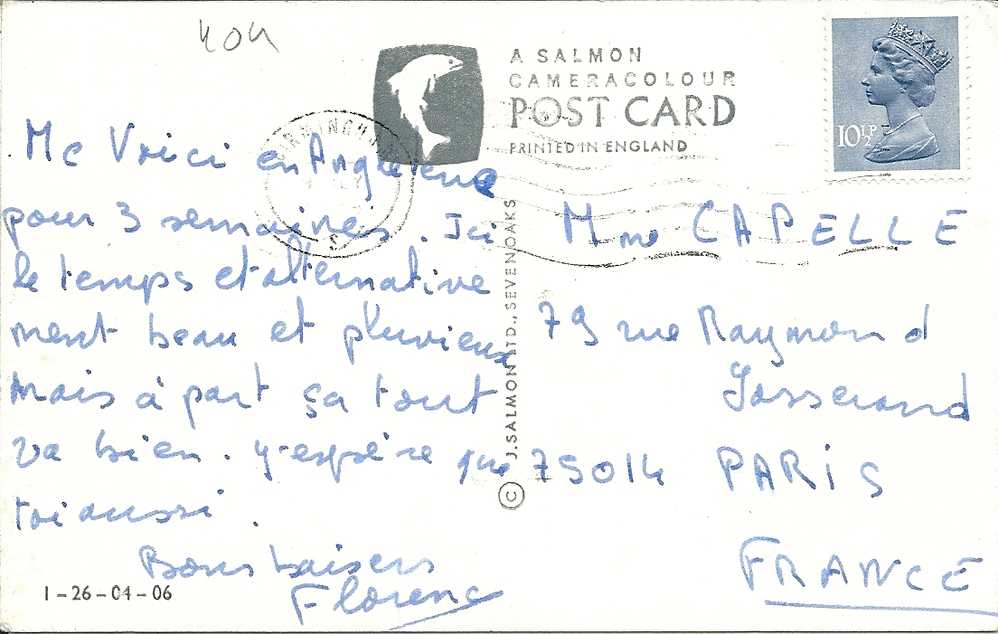 404
A SALMON
CAMERACOLOUR
POST CARD
PRINTED IN ENGLAND
10½P
BIRMINGHAM
Me Voici en Angleterre
pour 3 semaines. Ici
le temps et alternative
ment beau et pluvieux
mais à part ça tout
va bien. J'espère que
toi aussi.
Bons baisers
Florence
1-26-04-06
© J. SALMON LTD., SEVENOAKS
Mme CAPELLE
79 rue Raymond
Losserand
75014 PARIS
FRANCE